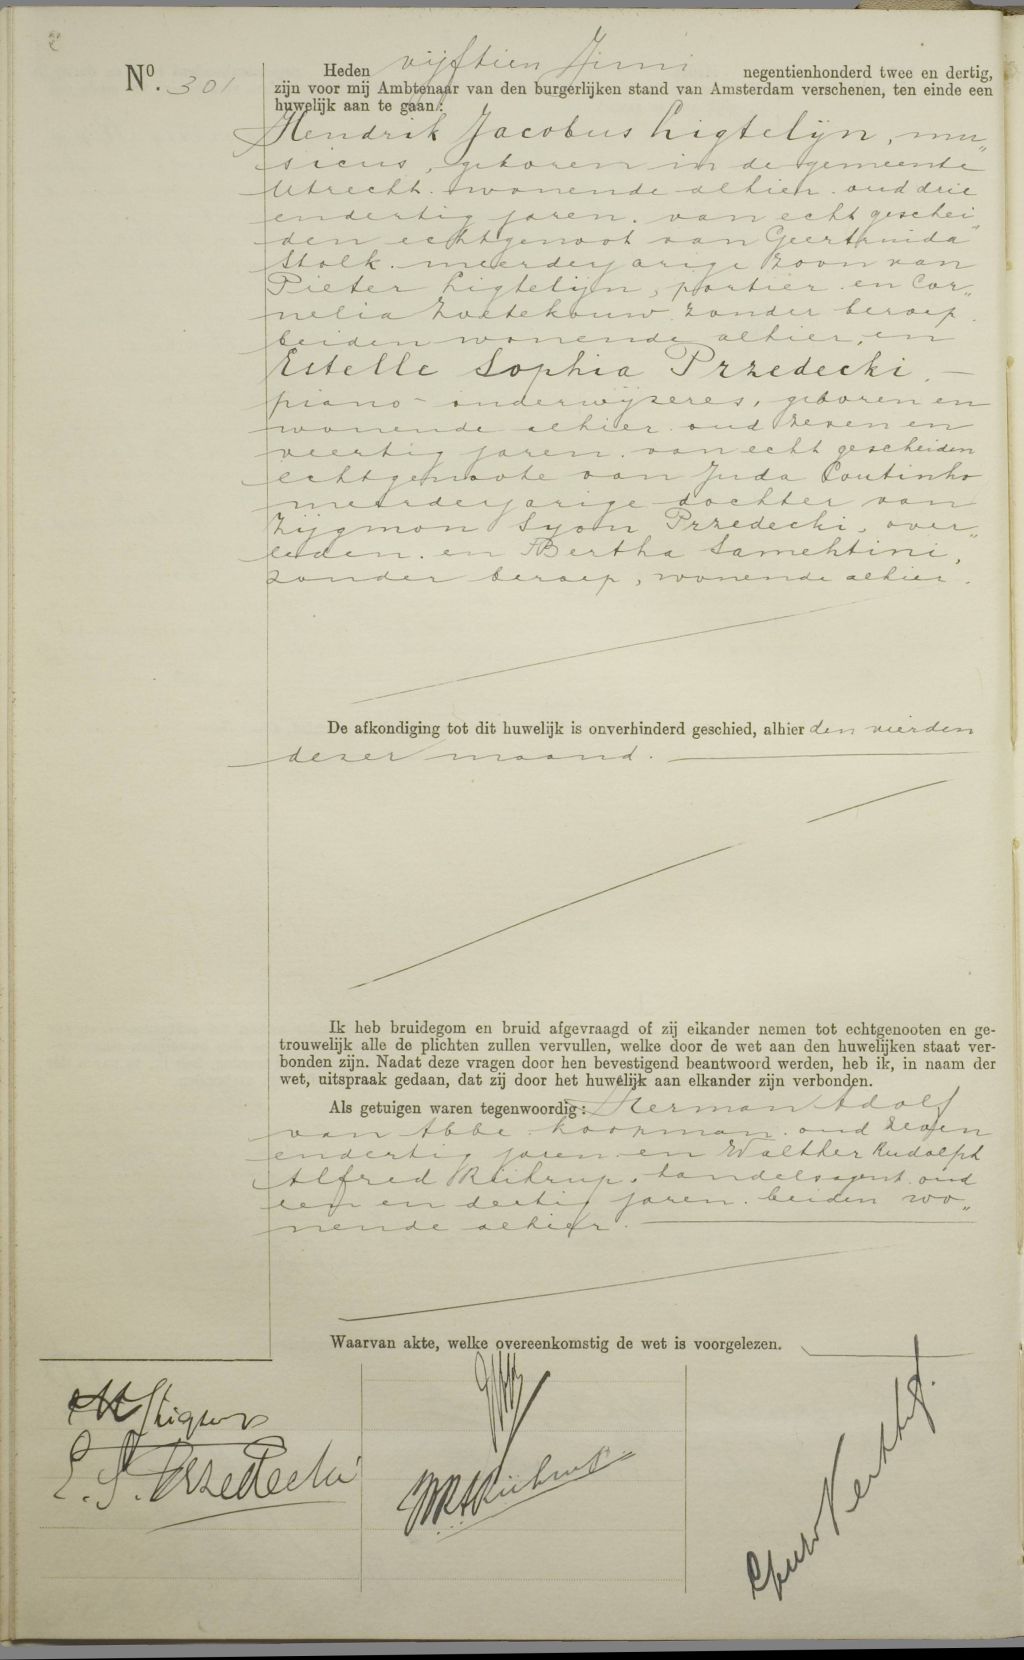 No. 301
Heden vijftien Juni negentienhonderd twee en dertig,
zijn voor mij Ambtenaar van den burgerlijken stand van Amsterdam verschenen, ten einde een
huwelijk aan te gaan:
Hendrik Jacobus Ligtelijn, mu„
sicus, geboren in de gemeente
Utrecht. wonende alhier. oud drie
endertig jaren. van echt geschei„
den echtgenoot van Geertruida
Stolk. meerderjarige zoon van
Pieter Ligtelijn, portier en Cor„
nelia Zoetekouw. zonder beroep.
beiden wonende alhier, en
Estelle Sophia Przedecki. —
piano-onderwijzeres, geboren en
wonende alhier oud zeven en
veertig jaren. van echt gescheiden
echtgenoote van Juda Coutinho
meerderjarige dochter van
Zijgmon Syon Przedecki, over„
leden. en Bertha Samehtini,
zonder beroep, wonende alhier.
De afkondiging tot dit huwelijk is onverhinderd geschied, alhier den vierden
dezer maand.
Ik heb bruidegom en bruid afgevraagd of zij elkander nemen tot echtgenooten en ge-
trouwelijk alle de plichten zullen vervullen, welke door de wet aan den huwelijken staat ver-
bonden zijn. Nadat deze vragen door hen bevestigend beantwoord werden, heb ik, in naam der
wet, uitspraak gedaan, dat zij door het huwelijk aan elkander zijn verbonden.
Als getuigen waren tegenwoordig: Herman Adolf
van Abbe. koopman. oud zeven
endertig jaren en Walther Rudolph
Alfred Rührup. handelsagent. oud
een en dertig jaren. beiden wo„
nende alhier.
Waarvan akte, welke overeenkomstig de wet is voorgelezen.
E. S. Przedecki